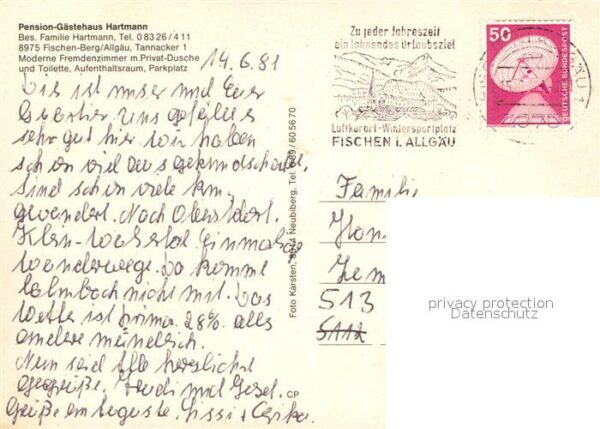 Pension-Gästehaus Hartmann
Bes. Familie Hartmann, Tel. 0 83 26/4 11
8975 Fischen-Berg/Allgäu, Tannacker 1
Moderne Fremdenzimmer m.Privat-Dusche
und Toilette, Aufenthaltsraum, Parkplatz
14.6.81
ist unser und Euer
Quartier Uns gefällt es
sehr gut hier wir haben
schon viel ausgekundschaftet,
Sind schon viele km
gewandert. Nach Oberstdorf.
Klein-Walsertal Einmalige
Wanderwege. Da komme
nicht mit. Das
Wetter ist prima 28% alles
andere mündlich.
Nun seid alle herzlichst
gegrüßt. Heidi und Gesel.
Grüße an Auguste. Sissi +
Foto Karsten, 8014 Neubiberg, Tel. 089/60 56 70
CP
Zu jeder Jahreszeit
ein lohnendes Urlaubsziel
Luftkurort-Wintersportplatz
FISCHEN i. ALLGÄU
50
DEUTSCHE BUNDESPOST
Familie
513
5112
privacy protection
Datenschutz